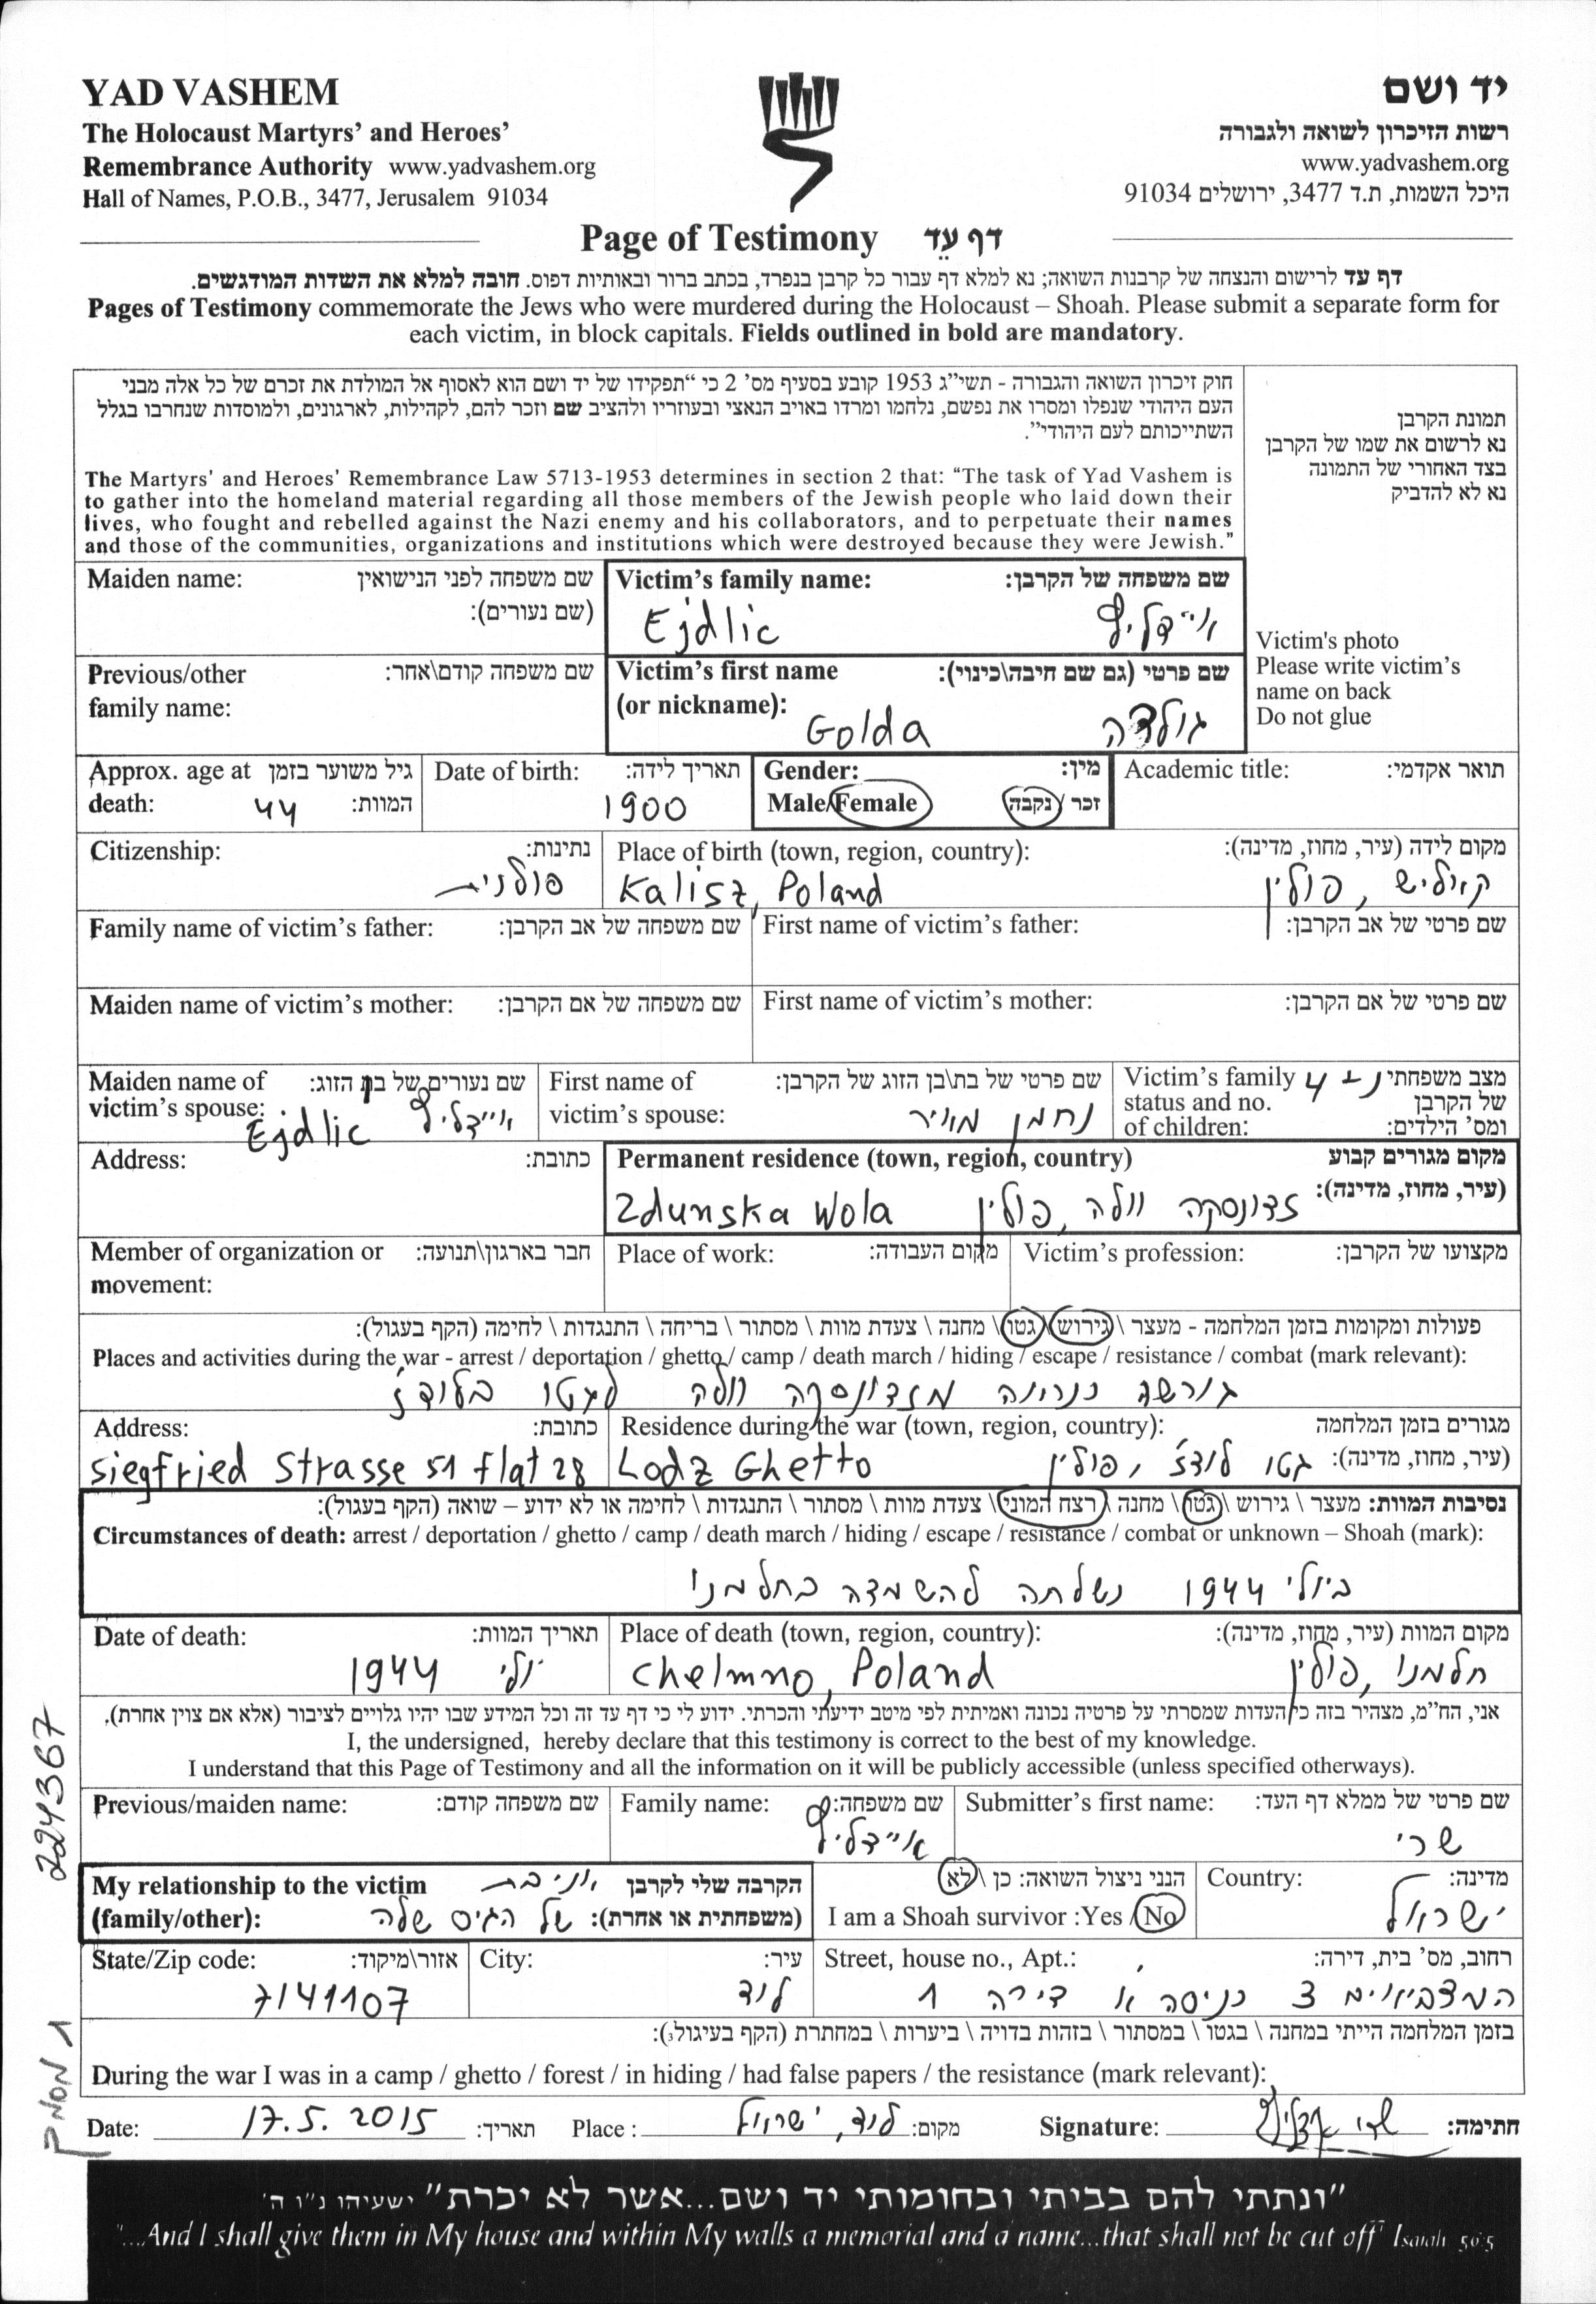 YAD VASHEM
The Holocaust Martyrs' and Heroes'
Remembrance Authority www.yadvashem.org
Hall of Names, P.O.B., 3477, Jerusalem 91034
יד ושם
רשות הזיכרון לשואה ולגבורה
www.yadvashem.org
היכל השמות, ת.ד 3477, ירושלים 91034
Page of Testimony דף עֵד
דף עד לרישום והנצחה של קרבנות השואה; נא למלא דף עבור כל קרבן בנפרד, בכתב ברור ובאותיות דפוס. חובה למלא את השדות המודגשים.
Pages of Testimony commemorate the Jews who were murdered during the Holocaust – Shoah. Please submit a separate form for
each victim, in block capitals. Fields outlined in bold are mandatory.
חוק זיכרון השואה והגבורה - תשי"ג 1953 קובע בסעיף מס' 2 כי "תפקידו של יד ושם הוא לאסוף אל המולדת את זכרם של כל אלה מבני
העם היהודי שנפלו ומסרו את נפשם, נלחמו ומרדו באויב הנאצי ובעוזריו ולהציב שם וזכר להם, לקהילות, לארגונים, ולמוסדות שנחרבו בגלל
השתייכותם לעם היהודי".
The Martyrs' and Heroes' Remembrance Law 5713-1953 determines in section 2 that: "The task of Yad Vashem is
to gather into the homeland material regarding all those members of the Jewish people who laid down their
lives, who fought and rebelled against the Nazi enemy and his collaborators, and to perpetuate their names
and those of the communities, organizations and institutions which were destroyed because they were Jewish."
תמונת הקרבן
נא לרשום את שמו של הקרבן
בצד האחורי של התמונה
נא לא להדביק
Victim's photo
Please write victim's
name on back
Do not glue
Maiden name: שם משפחה לפני הנישואין
(שם נעורים):
Victim's family name: שם משפחה של הקרבן:
Ejdlic איידליץ
Previous/other שם משפחה קודם\אחר:
family name:
Victim's first name שם פרטי (גם שם חיבה\כינוי):
(or nickname):
Golda גולדה
Approx. age at גיל משוער בזמן
death: 44 המוות:
Date of birth: תאריך לידה:
1900
Gender: מין:
Male/Female זכר / נקבה
Academic title: תואר אקדמי:
Citizenship: נתינות:
פולנית
Place of birth (town, region, country): מקום לידה (עיר, מחוז, מדינה):
Kalisz, Poland קאליש, פולין
Family name of victim's father: שם משפחה של אב הקרבן:
First name of victim's father: שם פרטי של אב הקרבן:
Maiden name of victim's mother: שם משפחה של אם הקרבן:
First name of victim's mother: שם פרטי של אם הקרבן:
Maiden name of שם נעורים של בן הזוג:
victim's spouse: Ejdlic איידליץ
First name of שם פרטי של בת\בן הזוג של הקרבן:
victim's spouse: נחמן מאיר
Victim's family מצב משפחתי נ+4
status and no. של הקרבן
of children: ומס' הילדים:
Address: כתובת:
Permanent residence (town, region, country) מקום מגורים קבוע
(עיר, מחוז, מדינה):
Zdunska Wola זדונסקה וולה, פולין
Member of organization or חבר בארגון\תנועה:
movement:
Place of work: מקום העבודה:
Victim's profession: מקצועו של הקרבן:
פעולות ומקומות בזמן המלחמה - מעצר \ גירוש \ גטו \ מחנה \ צעדת מוות \ מסתור \ בריחה \ התנגדות \ לחימה (הקף בעגול):
Places and activities during the war - arrest / deportation / ghetto / camp / death march / hiding / escape / resistance / combat (mark relevant):
גורשה כנראה מזדונסקה וולה לגטו בלודז'
Address: כתובת:
Siegfried Strasse 51 flat 28
Residence during the war (town, region, country): מגורים בזמן המלחמה
(עיר, מחוז, מדינה):
Lodz Ghetto גטו לודז', פולין
נסיבות המוות: מעצר \ גירוש \ גטו \ מחנה \ רצח המוני \ צעדת מוות \ מסתור \ התנגדות \ לחימה או לא ידוע – שואה (הקף בעגול):
Circumstances of death: arrest / deportation / ghetto / camp / death march / hiding / escape / resistance / combat or unknown – Shoah (mark):
ביולי 1944 נשלחה להשמדה בחלמנו
Date of death: תאריך המוות:
יולי 1944
Place of death (town, region, country): מקום המוות (עיר, מחוז, מדינה):
Chelmno, Poland חלמנו, פולין
אני, הח"מ, מצהיר בזה כי העדות שמסרתי על פרטיה נכונה ואמיתית לפי מיטב ידיעתי והכרתי. ידוע לי כי דף עד זה וכל המידע שבו יהיו גלויים לציבור (אלא אם צוין אחרת).
I, the undersigned, hereby declare that this testimony is correct to the best of my knowledge.
I understand that this Page of Testimony and all the information on it will be publicly accessible (unless specified otherways).
Previous/maiden name: שם משפחה קודם:
Family name: שם משפחה:
איידליץ
Submitter's first name: שם פרטי של ממלא דף העד:
שרי
My relationship to the victim הקרבה שלי לקרבן
(family/other): (משפחתית או אחרת): של הגיס שלה
הנני ניצול השואה: כן \ לא
I am a Shoah survivor :Yes / No
Country: מדינה:
ישראל
State/Zip code: אזור\מיקוד:
7141107
City: עיר:
לוד
Street, house no., Apt.: רחוב, מס' בית, דירה:
המצביאים 3 כניסה א דירה 1
בזמן המלחמה הייתי במחנה \ בגטו \ במסתור \ בזהות בדויה \ ביערות \ במחתרת (הקף בעיגול):
During the war I was in a camp / ghetto / forest / in hiding / had false papers / the resistance (mark relevant):
Date: 17.5.2015 תאריך:
Place : לוד, ישראל מקום:
Signature: שרי איידליץ חתימה:
"ונתתי להם בביתי ובחומותי יד ושם...אשר לא יכרת" ישעיהו נ"ו ה'
"...And I shall give them in My house and within My walls a memorial and a name...that shall not be cut off" Isaiah 56:5
224367